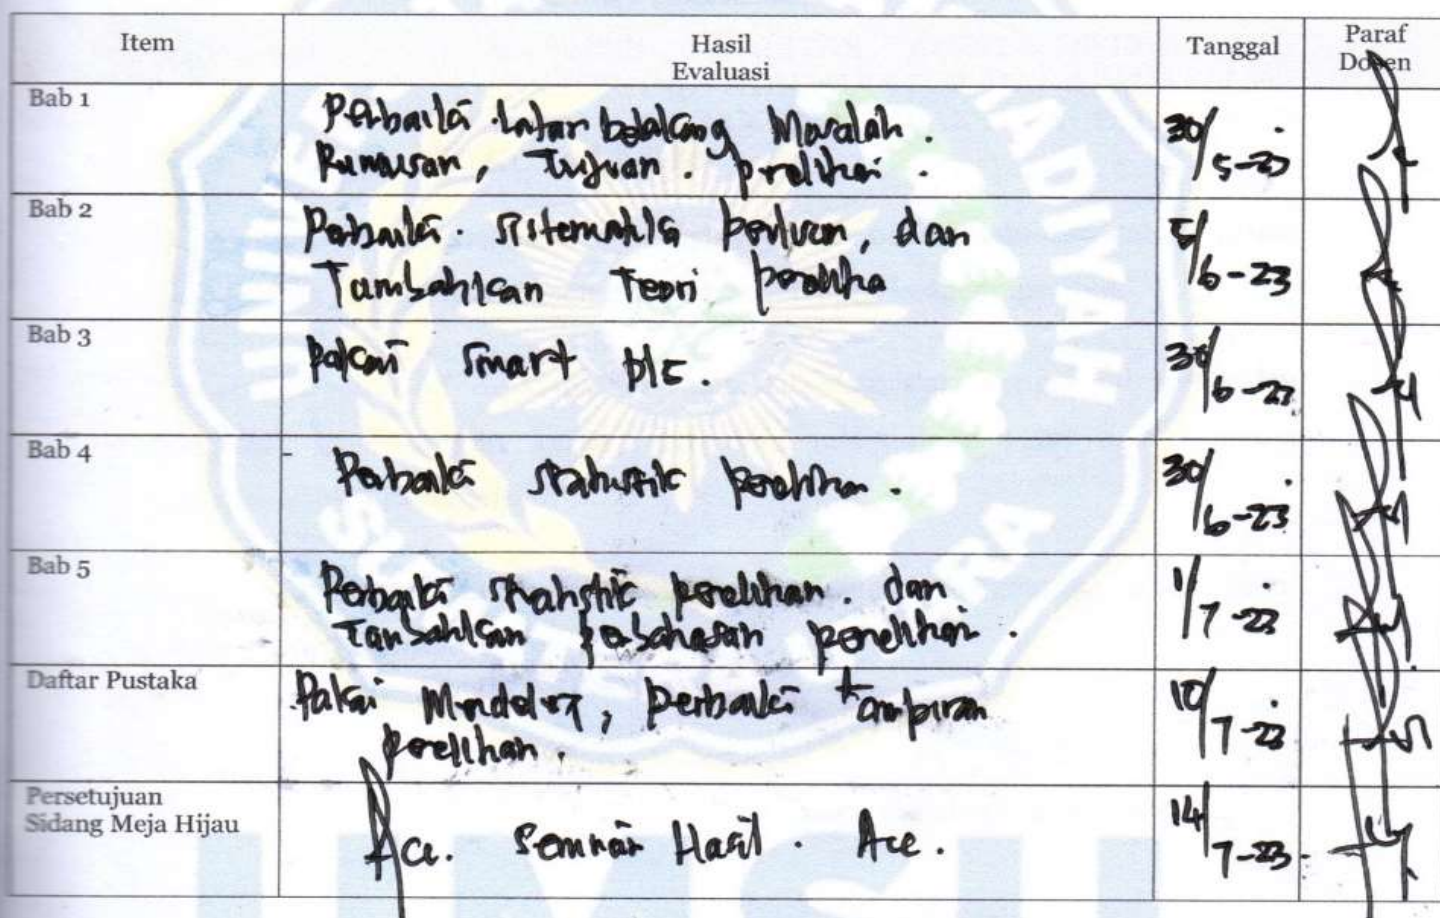 Item
Hasil
Evaluasi
Tanggal
Paraf
Dosen
Bab 1
Perbaiki Latar belakang Masalah.
Rumusan, Tujuan. penelitian.
30/5-23
Bab 2
Perbaiki. sistematika penulisan, dan
Tambahkan Teori penelitian
5/6-23
Bab 3
pakai smart pls.
30/6-23
Bab 4
Perbaiki statistik penelitian.
30/6-23
Bab 5
Perbaiki statistik penelitian. dan
Tambahkan pembahasan penelitian.
1/7-23
Daftar Pustaka
Pakai Mendeley, perbaiki Lampiran
penelitian.
10/7-23
Persetujuan
Sidang Meja Hijau
Acc. Seminar Hasil. Acc.
14/7-23
UMSU